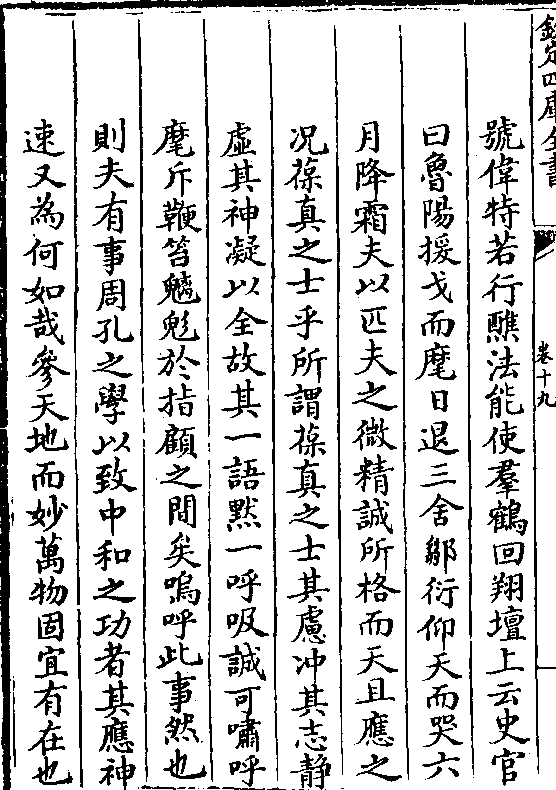 欽定四庫全書
卷十九
號偉特若行醮法能使羣鶴回翔壇上云史官
曰魯陽援戈而麾日退三舍鄒衍仰天而哭六
月降霜夫以匹夫之微精誠所格而天且應之
况葆真之士乎所謂葆真之士其慮冲其志静
虛其神凝以全故其一語黙一呼吸誠可嘯呼
麾斥鞭笞魑鬽於指顧之間矣嗚呼此事然也
則夫有事周孔之學以致中和之功者其應神
速又為何如哉參天地而妙萬物固宜有在也